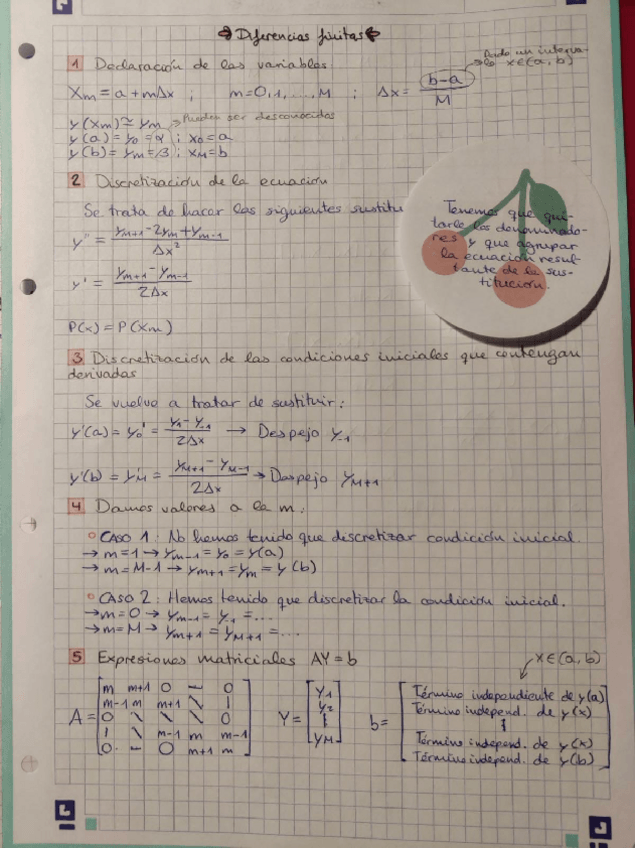 Diferencias finitas
Dado un interva-
lo x∈(a, b)
1 Declaración de las variables
Xm = a + mΔx ; m = 0, 1, ..., M ; Δx = (b-a)/M
y(xm) ≅ ym → Pueden ser desconocidas
y(a) = y0 = α ; x0 = a
y(b) = ym = β ; xM = b
2 Discretización de la ecuación
Se trata de hacer las siguientes sustitu
y'' = (ym+1 - 2ym + ym-1)/Δx²
y' = (ym+1 - ym-1)/2Δx
P(x) = P(xm)
Tenemos que qui-
tarle los denominado-
res y que agrupar
la ecuación resul-
tante de la sus-
titución.
3 Discretización de las condiciones iniciales que contengan
derivadas
Se vuelve a tratar de sustituir:
y'(a) = y0' = (y1 - y-1)/2Δx → Despejo y-1
y'(b) = y'M = (yM+1 - yM-1)/2Δx → Despejo yM+1
4 Damos valores a la m:
CASO 1: No hemos tenido que discretizar condición inicial.
→ m=1 → ym-1 = y0 = y(a)
→ m=M-1 → ym+1 = ym = y(b)
CASO 2: Hemos tenido que discretizar la condición inicial.
→ m=0 → ym-1 = y-1 = ...
→ m=M → ym+1 = yM+1 = ...
5 Expresiones matriciales AY=b
x∈(a, b)
A = [ m m+1 0 — 0
m-1 m m+1 \ |
0 \ \ \ 0
| \ m-1 m m-1
0 - 0 m+1 m ]
Y = [ y1
y2
|
yM ]
b = [ Término independiente de y(a)
Término independ. de y(x)
|
Término independ. de y(x)
Término independ. de y(b) ]